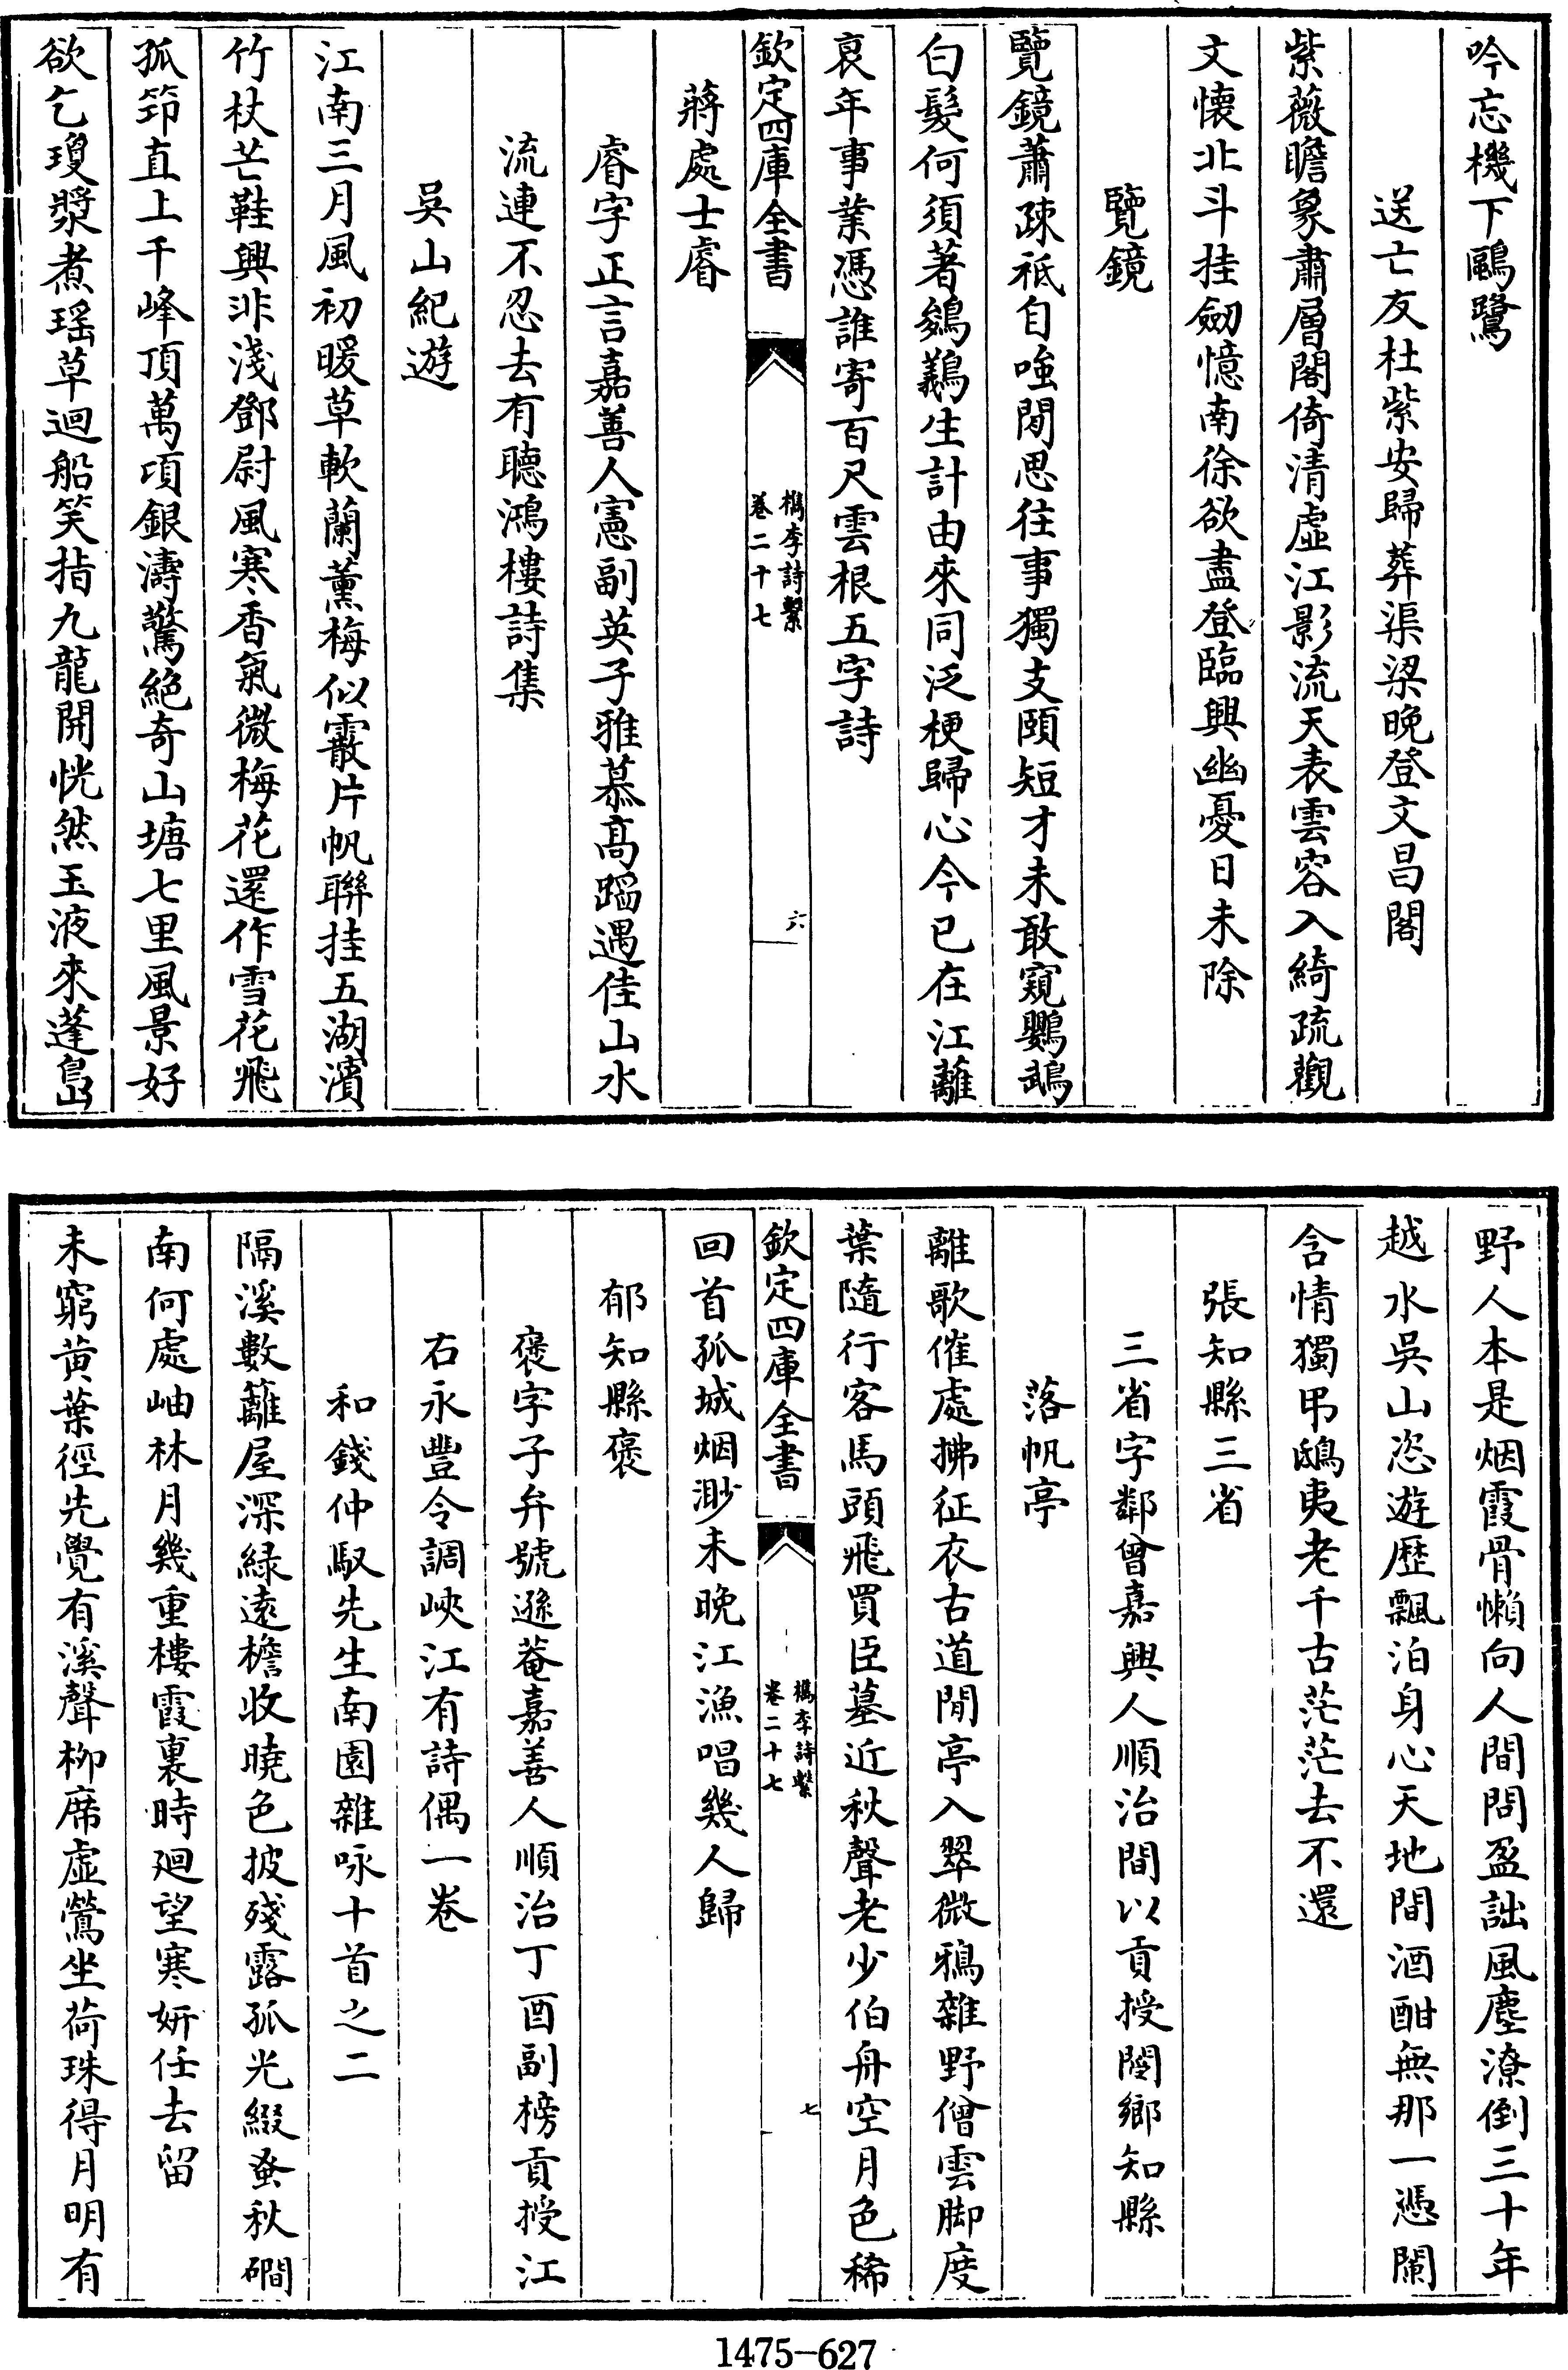 吟忘機下鷗鷺
送亡友杜紫安歸葬渠梁晚登文昌閣
紫薇瞻象肅層閣倚清虛江影流天表雲容入綺疏觀
文懷北斗挂劒憶南徐欲盡登臨興幽憂日未除
覽鏡
覽鏡蕭疎祇自嗤閒思往事獨支頤短才未敢窺鸚鵡
白髮何須著鵕鸃生計由來同泛梗歸心今已在江蘺
哀年事業憑誰寄百尺雲根五字詩
欽定四庫全書
檇李詩繫
卷二十七
六
蔣處士睿
睿字正言嘉善人憲副英子雅慕高蹈遇佳山水
流連不忍去有聽鴻樓詩集
吳山紀遊
江南三月風初暖草軟蘭薰梅似霰片帆聯挂五湖濱
竹杖芒鞋興非淺鄧尉風寒香氣微梅花還作雪花飛
孤筇直上千峰頂萬頃銀濤驚絕奇山塘七里風景好
欲乞瓊漿煮瑶草迴船笑指九龍開恍然玉液來蓬島
野人本是烟霞骨懶向人間問盈詘風塵潦倒三十年
越水吳山恣遊歷飄泊身心天地間酒酣無那一憑闌
含情獨弔鴟夷老千古茫茫去不還
張知縣三省
三省字鄰曾嘉興人順治間以貢授閿鄉知縣
落帆亭
離歌催處拂征衣古道閒亭入翠微鴉雜野僧雲脚度
葉隨行客馬頭飛買臣墓近秋聲老少伯舟空月色稀
欽定四庫全書
檇李詩繫
卷二十七
七
回首孤城烟渺未晚江漁唱幾人歸
郁知縣褒
褒字子弁號遜菴嘉善人順治丁酉副榜貢授江
右永豐令調峽江有詩偶一卷
和錢仲馭先生南園雜咏十首之二
隔溪數籬屋深綠遠檐收曉色披殘露孤光綴蚤秋磵
南何處岫林月幾重樓霞裏時迴望寒妍任去留
未窮黃葉徑先覺有溪聲柳席虛鶯坐荷珠得月明有
1475-627